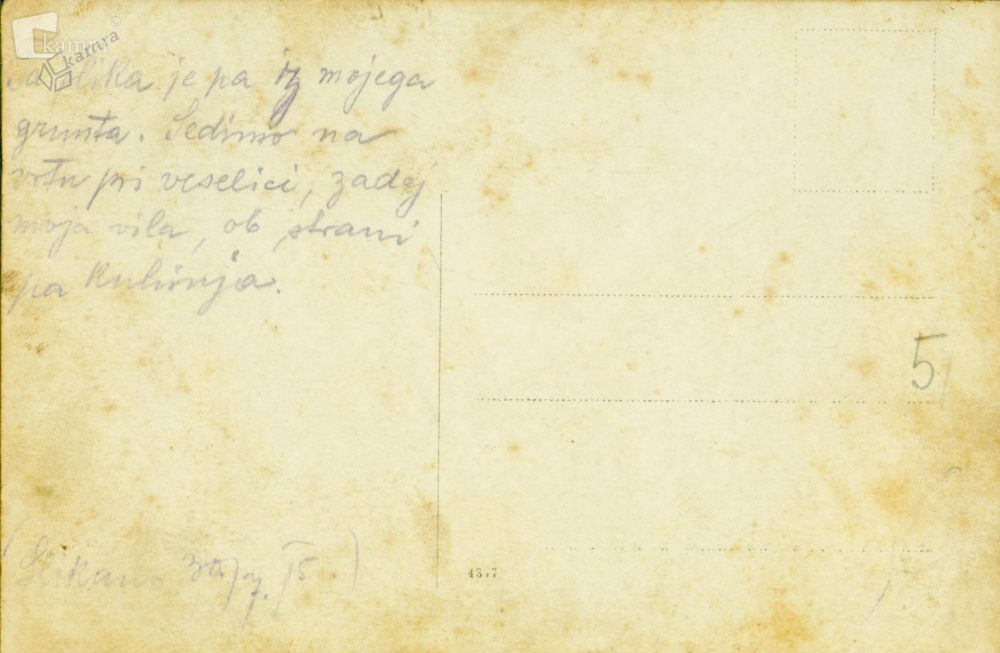 Ta slika je pa iz mojega
grunta. Sedimo na
vrtu pri veselici, zadej
moja vila, ob strani
pa kuhinja.
(Slikano 30/7. 15.)
5
43·7
kamra
kamra